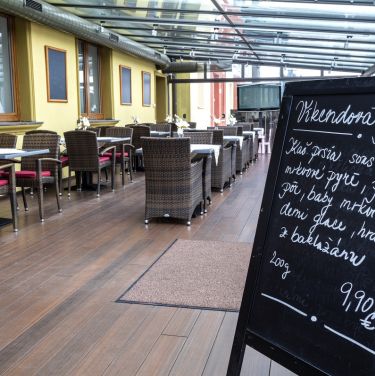 Víkendová
Kač. prsia sous
mrkvové pyré, z
pór, baby mrkv
demi glace, hra
z baklažánu
200g
9,90
€